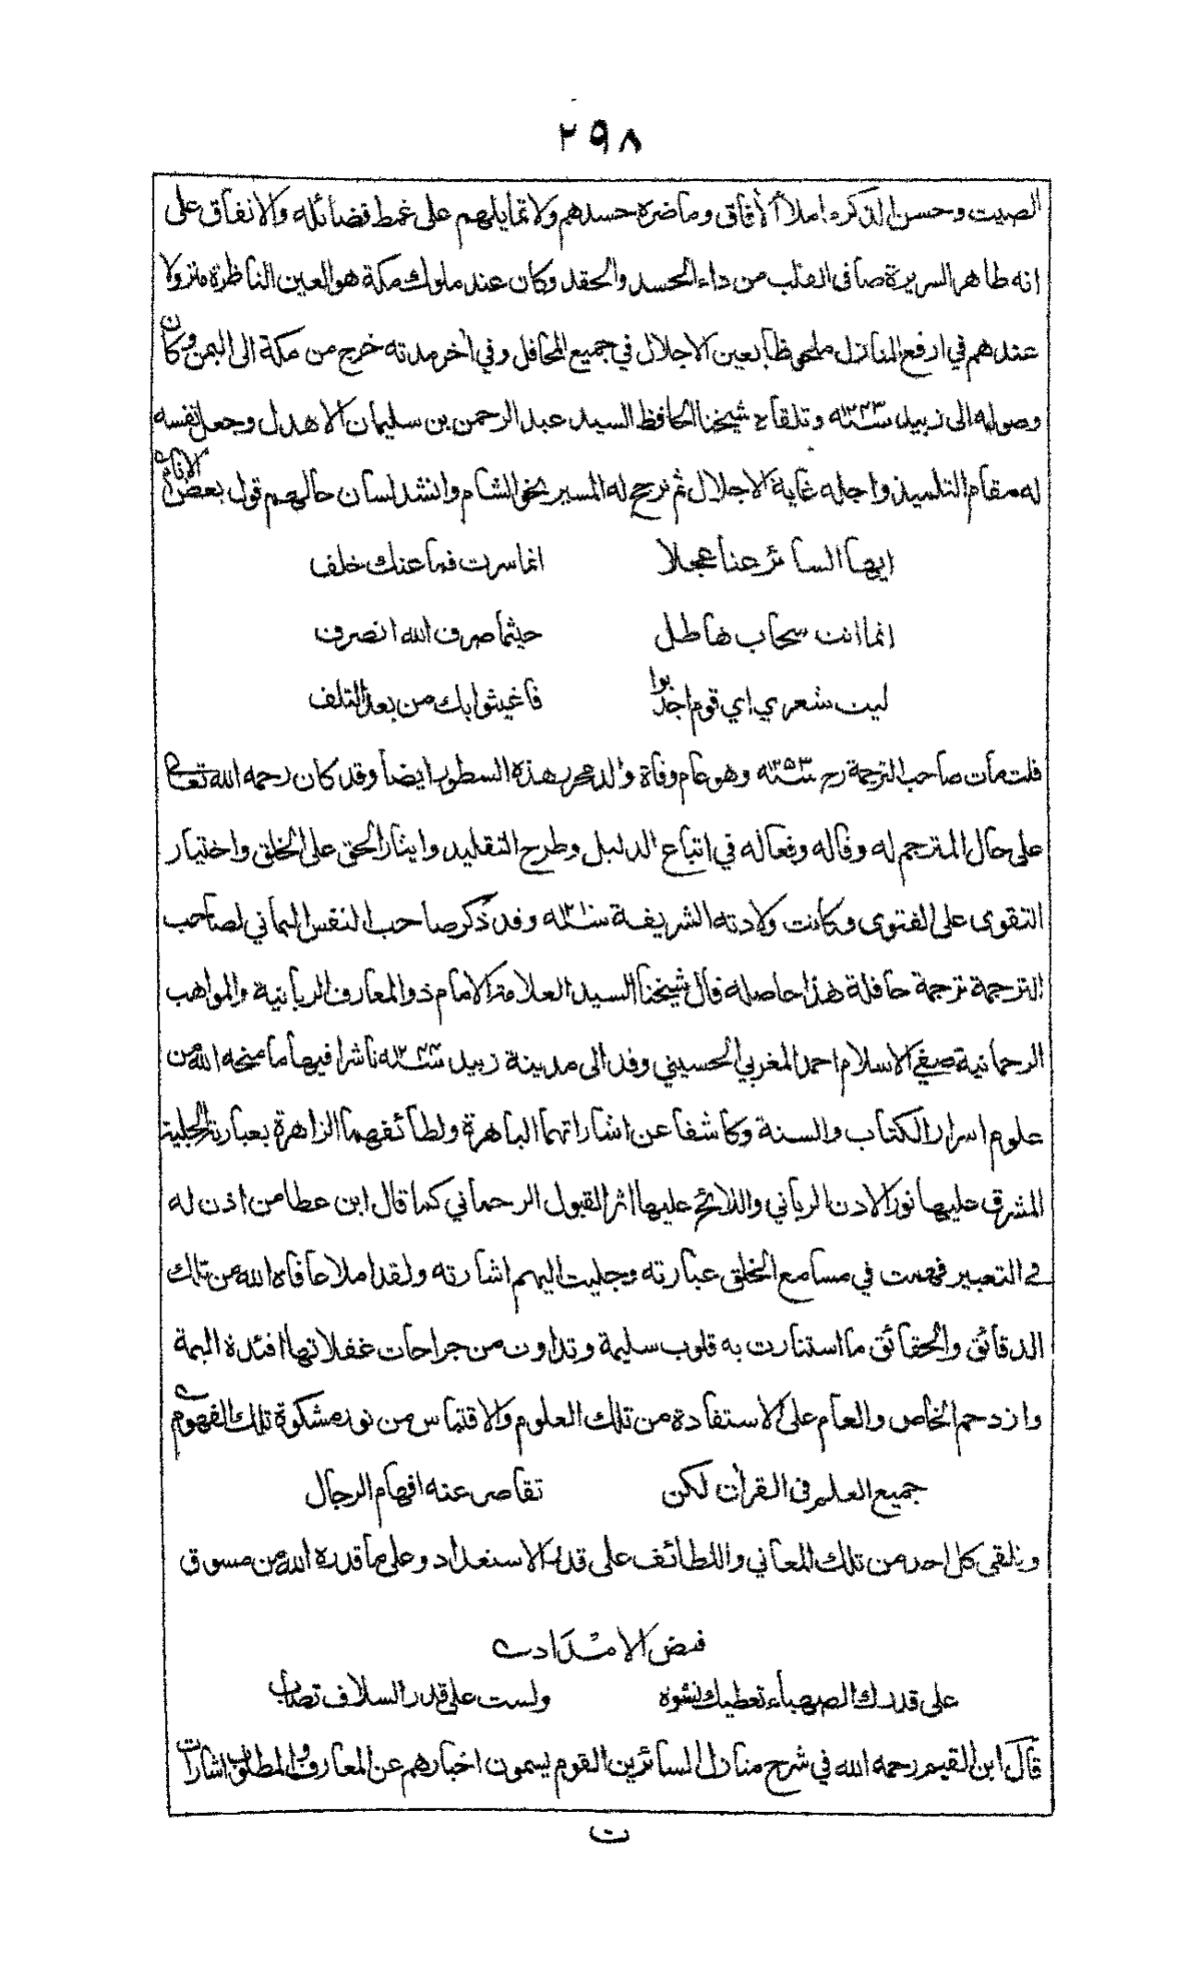 ٢٩٨
الصيت وحسن الذكر ما ملأ الآفاق وما ضره حسدهم ولا تمايلهم على غمط فضائله والاتفاق على
انه طاهر السريرة صافى القلب من داء الحسد والحقد وكان عند ملوك مكة هو العين الناظرة منزولا
عندهم في ارفع المنازل ملحوظا بعين الاجلال في جميع المحافل وفي آخر مدته خرج من مكة الى اليمن وكان
وصوله الى زبيد سنة ١٢٤٣ه وتلقاه شيخنا الحافظ السيد عبد الرحمن بن سليمان الاهدل وجعل نفسه
له مقام التلميذ واجله غاية الاجلال ثم ترجح له المسير نحو الشام وانشد لسان حالهم قول بعض
ايها السائر عنا عجلا انما سرت فما عنك خلف
انما انت سحاب هاطل حيثما صرف الله انصرف
ليت شعري اي قوم اجدبوا فاغيثوا بك من بعد التلف
قلت مات صاحب الترجمة رح سنة ١٢٥٣ه وهو عام وفاة والد محرر هذه السطور ايضا وقد كان رحمه الله تعالى
على حال المترجم له وقاله وفعاله في اتباع الدليل وطرح التقليد وايثار الحق على الخلق واختيار
التقوى على الفتوى وكانت ولادته الشريفة سنة ه وقد ذكر صاحب النفس اليماني لصاحب
الترجمة ترجمة حافلة هذا حاصله قال شيخنا السيد العلامة الامام ذو المعارف الربانية والمواهب
الرحمانية صفي الاسلام احمد المغربي الحسيني وفد الى مدينة زبيد سنة ه ناشرا فيها ما منحه الله من
علوم اسرار الكتاب والسنة وكاشفا عن اشاراتهما الباهرة ولطائفهما الزاهرة بعبارته الجلية
المشرق عليها نور الاذن الرباني واللائح عليها اثر القبول الرحماني كما قال ابن عطا من اذن له
في التعبير فهمت في مسامع الخلق عبارته وجليت اليهم اشارته ولقد املا حافاه الله من تلك
الدقائق والحقائق ما استنارت به قلوب سليمة وتداوت من جراحات غفلاتها افئدة اليمة
وازدحم الخاص والعام على الاستفادة من تلك العلوم والاقتباس من نور مشكوة تلك الفهوم
جميع العلم في القرآن لكن تقاصر عنه افهام الرجال
وتلقى كل احد من تلك المعاني واللطائف على قدر الاستعداد وعلى ما قدره الله من مسوق
فيض الامداد
على قدرك الصهباء تعطيك نشوة ولست على قدر السلاف تصاب
قال ابن القيم رحمه الله في شرح منازل السائرين القوم يسمون اخبارهم عن المعارف والمطلوب اشارات